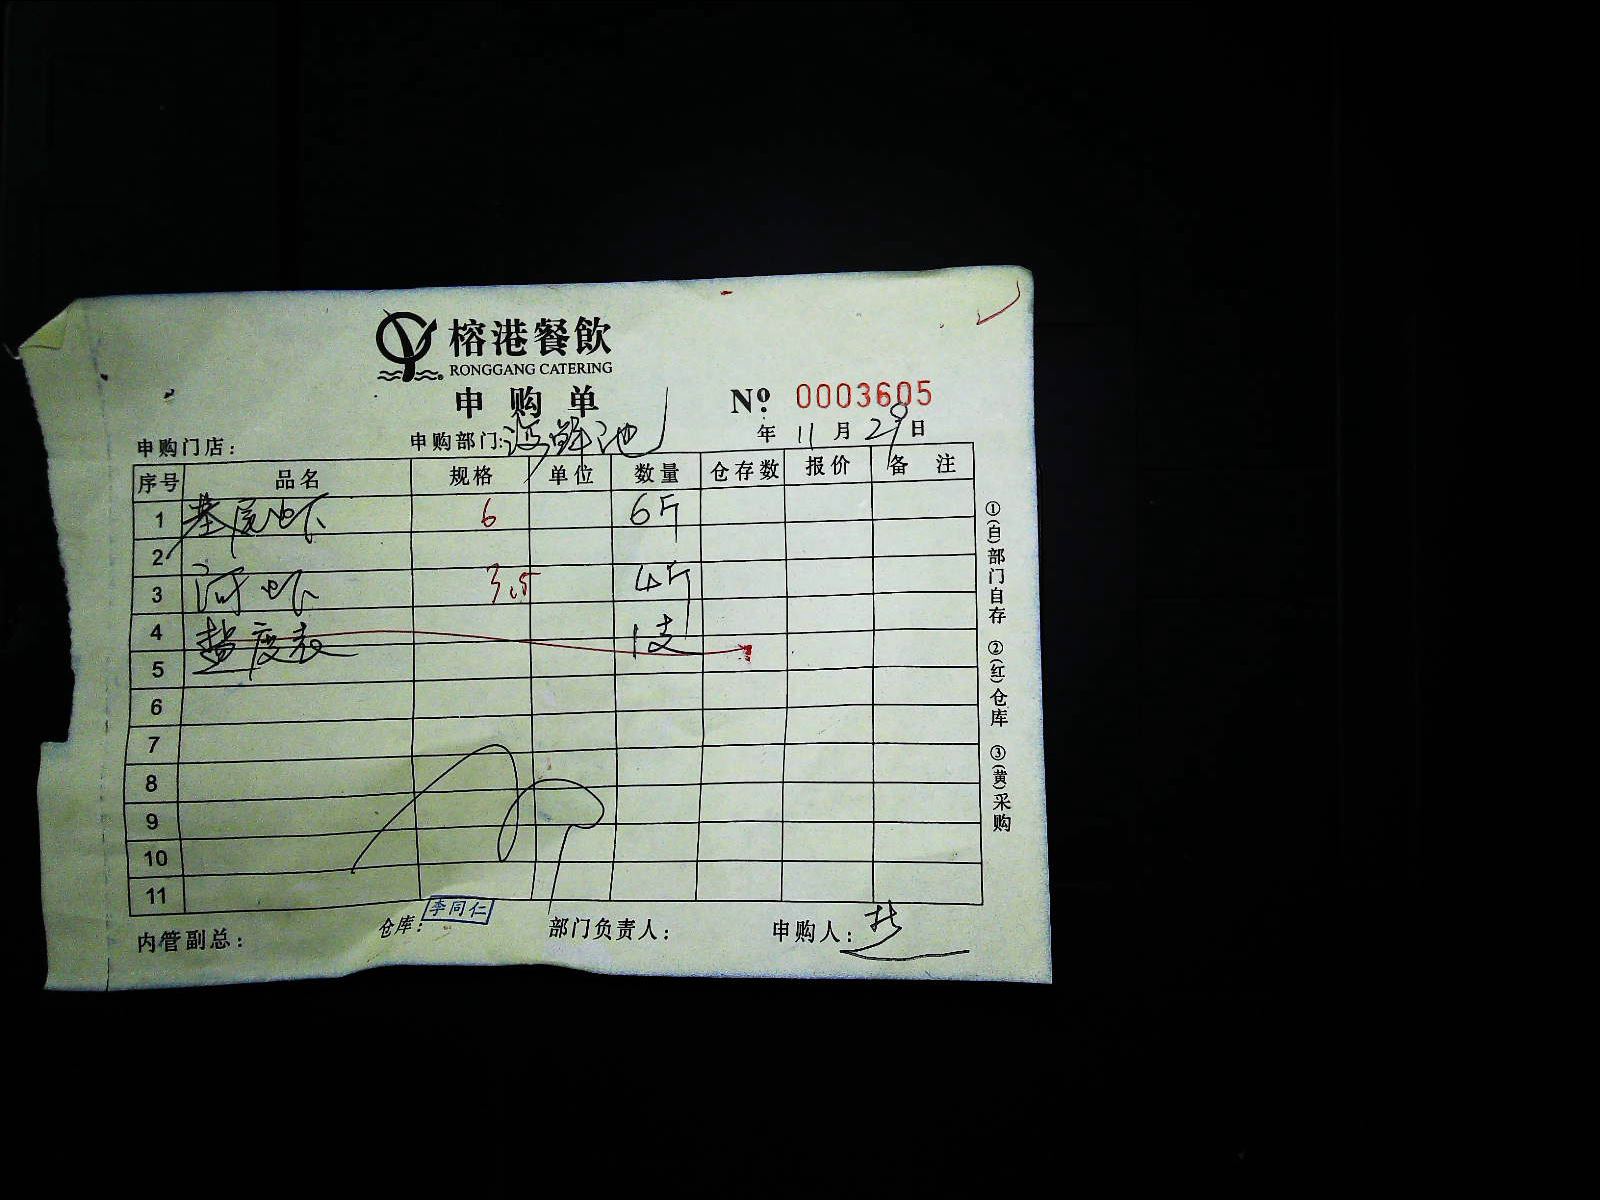 榕港餐飲
RONGGANG CATERING
申购单
№ 0003605
申购门店： 申购部门：海鲜池 年 11 月 29 日
序号 品名 规格 单位 数量 仓存数 报价 备注
1 基尾虾 6 6斤
2
3 河虾 3.5 4斤
4 盐度表 1支
5
6
7
8
9
10
11
①(白)部门自存 ②(红)仓库 ③(黄)采购
内管副总： 仓库：李同仁 部门负责人： 申购人：